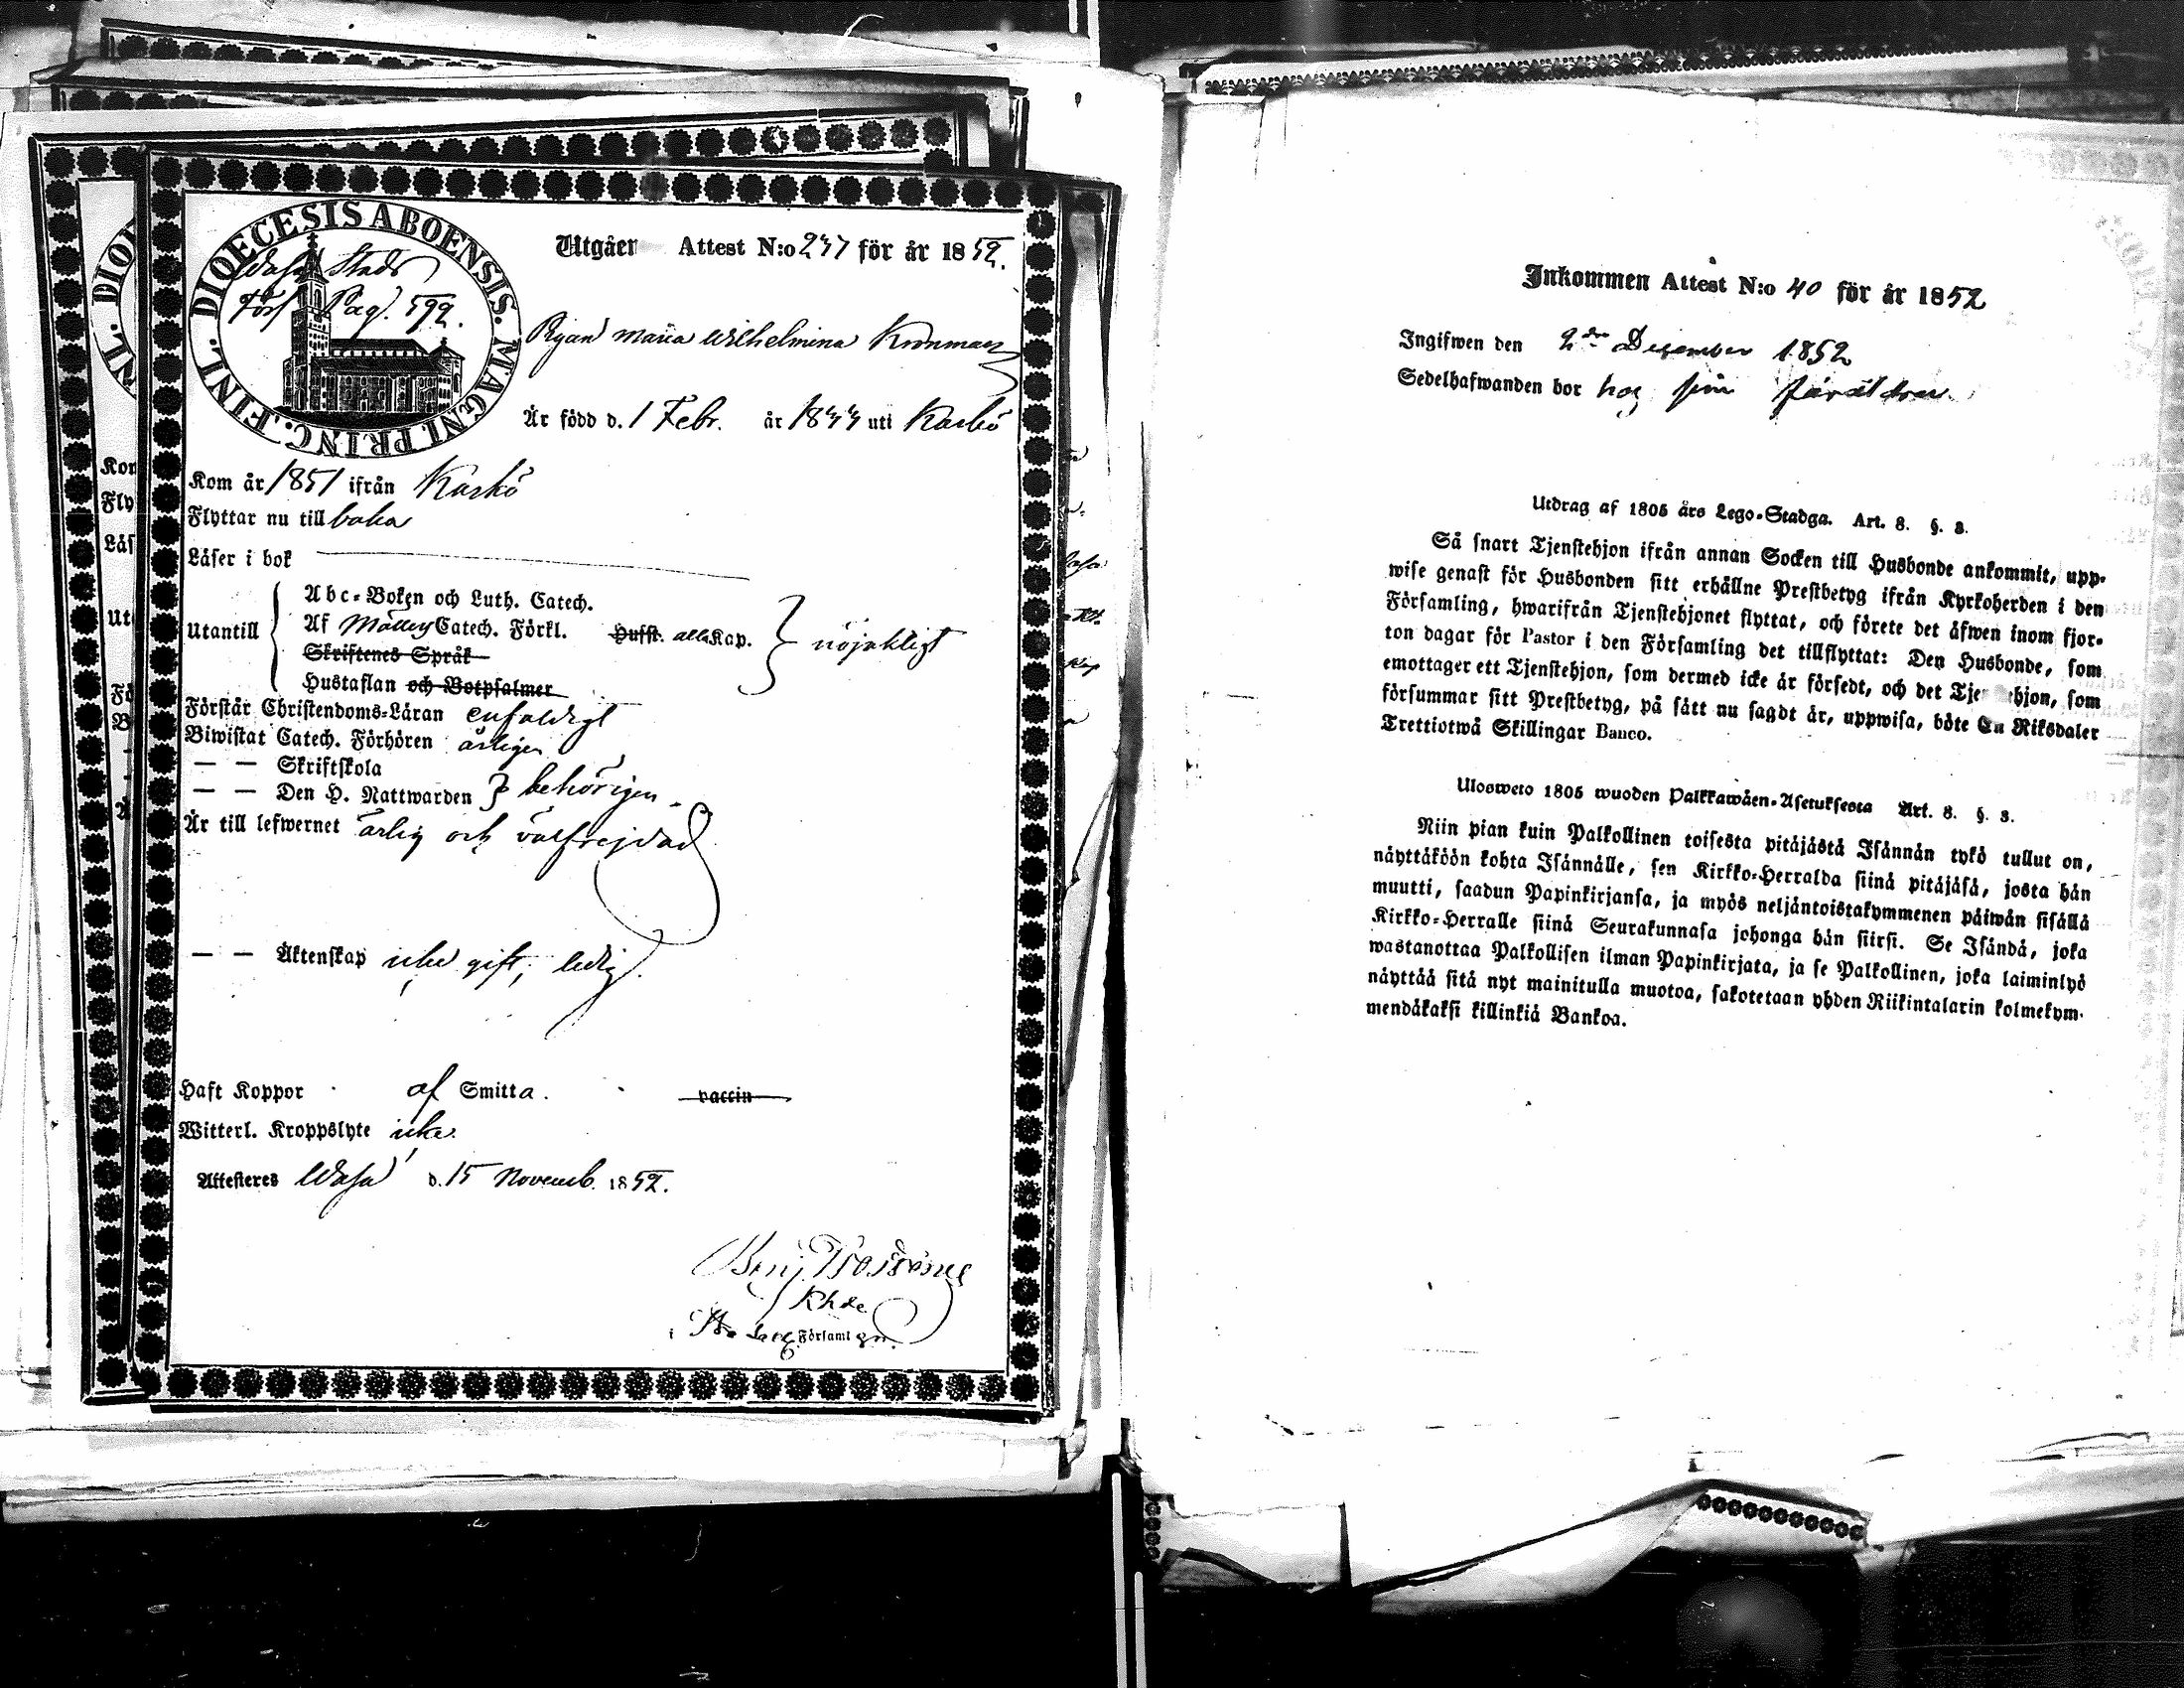 DIOECESIS ABOENSIS. MAGNI PRINC. FINL.
Wasa Stads
Förs. Pag. 592.
Utgåer Attest N:o 237 för år 1852.
Pigan Maria Wilhelmina Kronman
Är född d. 1 Febr. år 1833 uti Kaskö
Kom år 1851 ifrån Kaskö
Flyttar nu till baka
Läser i bok
Utantill
Abc-Boken och Luth. Catech.
Af Möllers Catech. Förkl. Husst. alla Kap.
Skriftenes Språk
Hustaflan och Botpsalmer
nöjakligt
Förstår Christendoms-Läran enfaldigt
Biwistat Catech. Förhören årligen
— — Skriftskola
— — Den H. Nattwarden } behörigen.
Är till lefwernet ärlig och välfrejdad
— — Äktenskap icke gift, ledig.
Haft Koppor af Smitta. vaccin
Witterl. Kroppslyte icke.
Attesteres Wasa d. 15 Novemb. 1852.
Benj.
Khde
i Församl gn.
Inkommen Attest N:o 40 för år 1852
Ingifwen den 2dre December 1852
Sedelhafwanden bor hos sin föräldrar.
Utdrag af 1805 års Lego-Stadga. Art. 8. §. 3.
Så snart Tjenstehjon ifrån annan Socken till Husbonde ankommit, upp-
wise genast för Husbonden sitt erhållne Prestbetyg ifrån Kyrkoherden i den
Församling, hwarifrån Tjenstehjonet flyttat, och förete det äfwen inom fjor-
ton dagar för Pastor i den Församling det tillflyttat: Den Husbonde, som
emottager ett Tjenstehjon, som dermed icke är försedt, och det Tje ehjon, som
försummar sitt Prestbetyg, på sätt nu sagdt är, uppwisa, böte En Riksdaler
Trettiotwå Skillingar Banco.
Ulosweto 1805 wuoden Palkkawäen-Asetuksesta Art. 8. §. 3.
Niin pian kuin Palkollinen toisesta pitäjästä Isännän tykö tullut on,
näyttäköön kohta Isännälle, sen Kirkko-Herralda siinä pitäjäsä, josta hän
muutti, saadun Papinkirjansa, ja myös neljäntoistakymmenen päiwän sisällä
Kirkko-Herralle siinä Seurakunnasa johonga hän siirsi. Se Isändä, joka
wastanottaa Palkollisen ilman Papinkirjata, ja se Palkollinen, joka laiminlyö
näyttää sitä nyt mainitulla muotoa, sakotetaan yhden Riikintalarin kolmekym-
mendäkaksi killinkiä Bankoa.